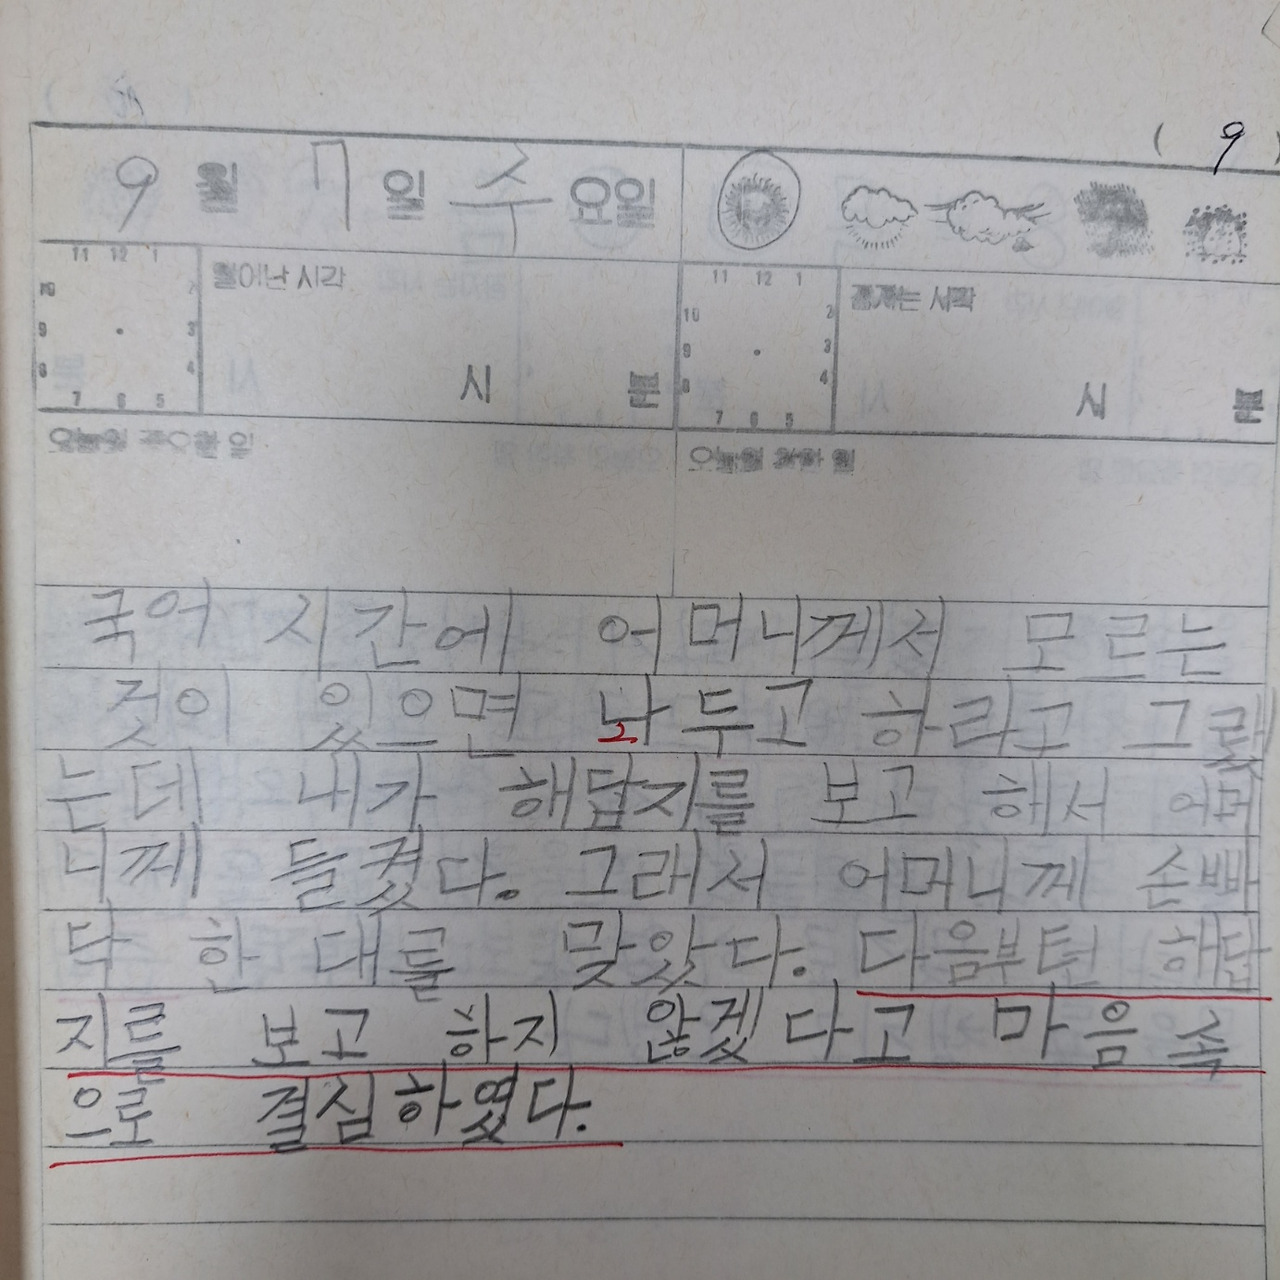 ( 9 )
9 월 7 일 수 요일
11 12 1 일어난 시각 11 12 1 잠자는 시각
10 2 10 2
9 3 9 3
8 4 시 분 8 4 시 분
7 6 5 7 6 5
오늘의 중요한 일 오늘의 착한 일
국어 시간에 어머니께서 모르는
것이 있으면 나두고 하라고 그랬
는데 내가 해답지를 보고 해서 어머
니께 들켰다. 그래서 어머니께 손빠
닥 한 대를 맞았다. 다음부턴 해답
지를 보고 하지 않겠다고 마음 속
으로 결심하였다.